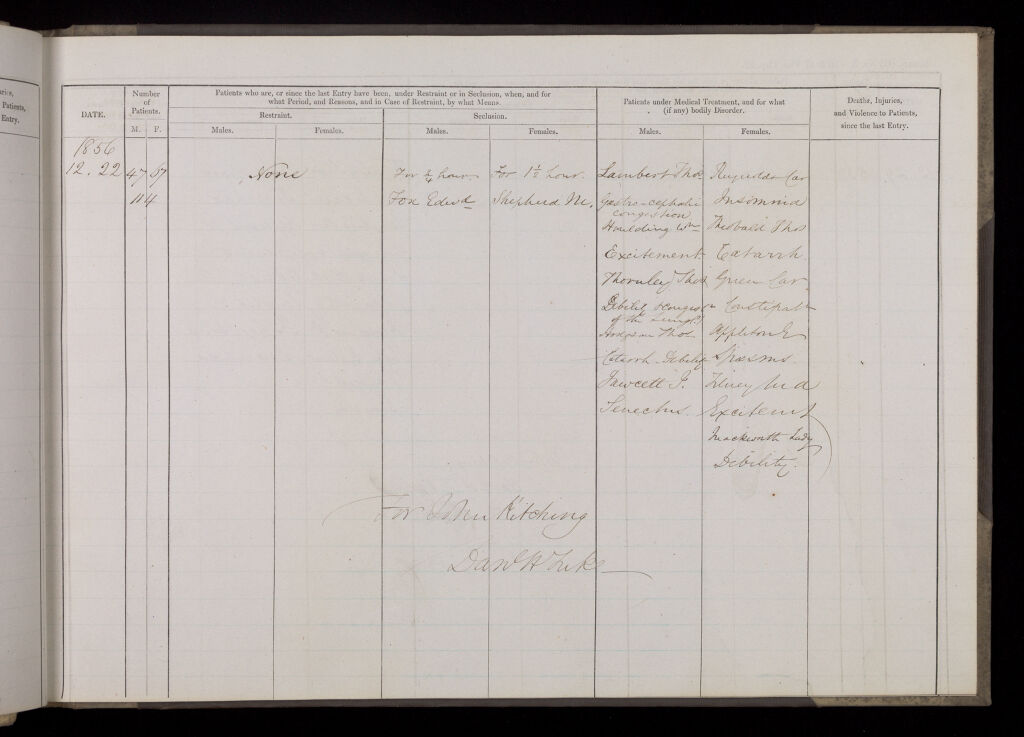 ries,
Patients,
Entry.
DATE.
Number
of
Patients.
M. F.
Patients who are, or since the last Entry have been, under Restraint or in Seclusion, when, and for
what Period, and Reasons, and in Case of Restraint, by what Means.
Restraint.
Seclusion.
Males.
Females.
Males.
Females.
Patients under Medical Treatment, and for what
(if any) bodily Disorder.
Males.
Females.
Deaths, Injuries,
and Violence to Patients,
since the last Entry.
1856
12. 22 47 67
114
None
For ¾ hour.
Fox Edwd
For 1½ hour.
Shepherd M.
Lambert Thos
Gastro-cephalic
congestion
Houlding Wm
Excitement
Thornley Thos
Debility & Conges
of the Lungs
Thos
Catarrh Debility
Fawcett J.
Senectus.
Car
Insomnia
Theobald Thos
Catarrh.
Green Car
Constipatn
Appleton E
Spasms.
Excitemt
Mackworth Lady
Debility.
For John Kitching
Danl H Tuke